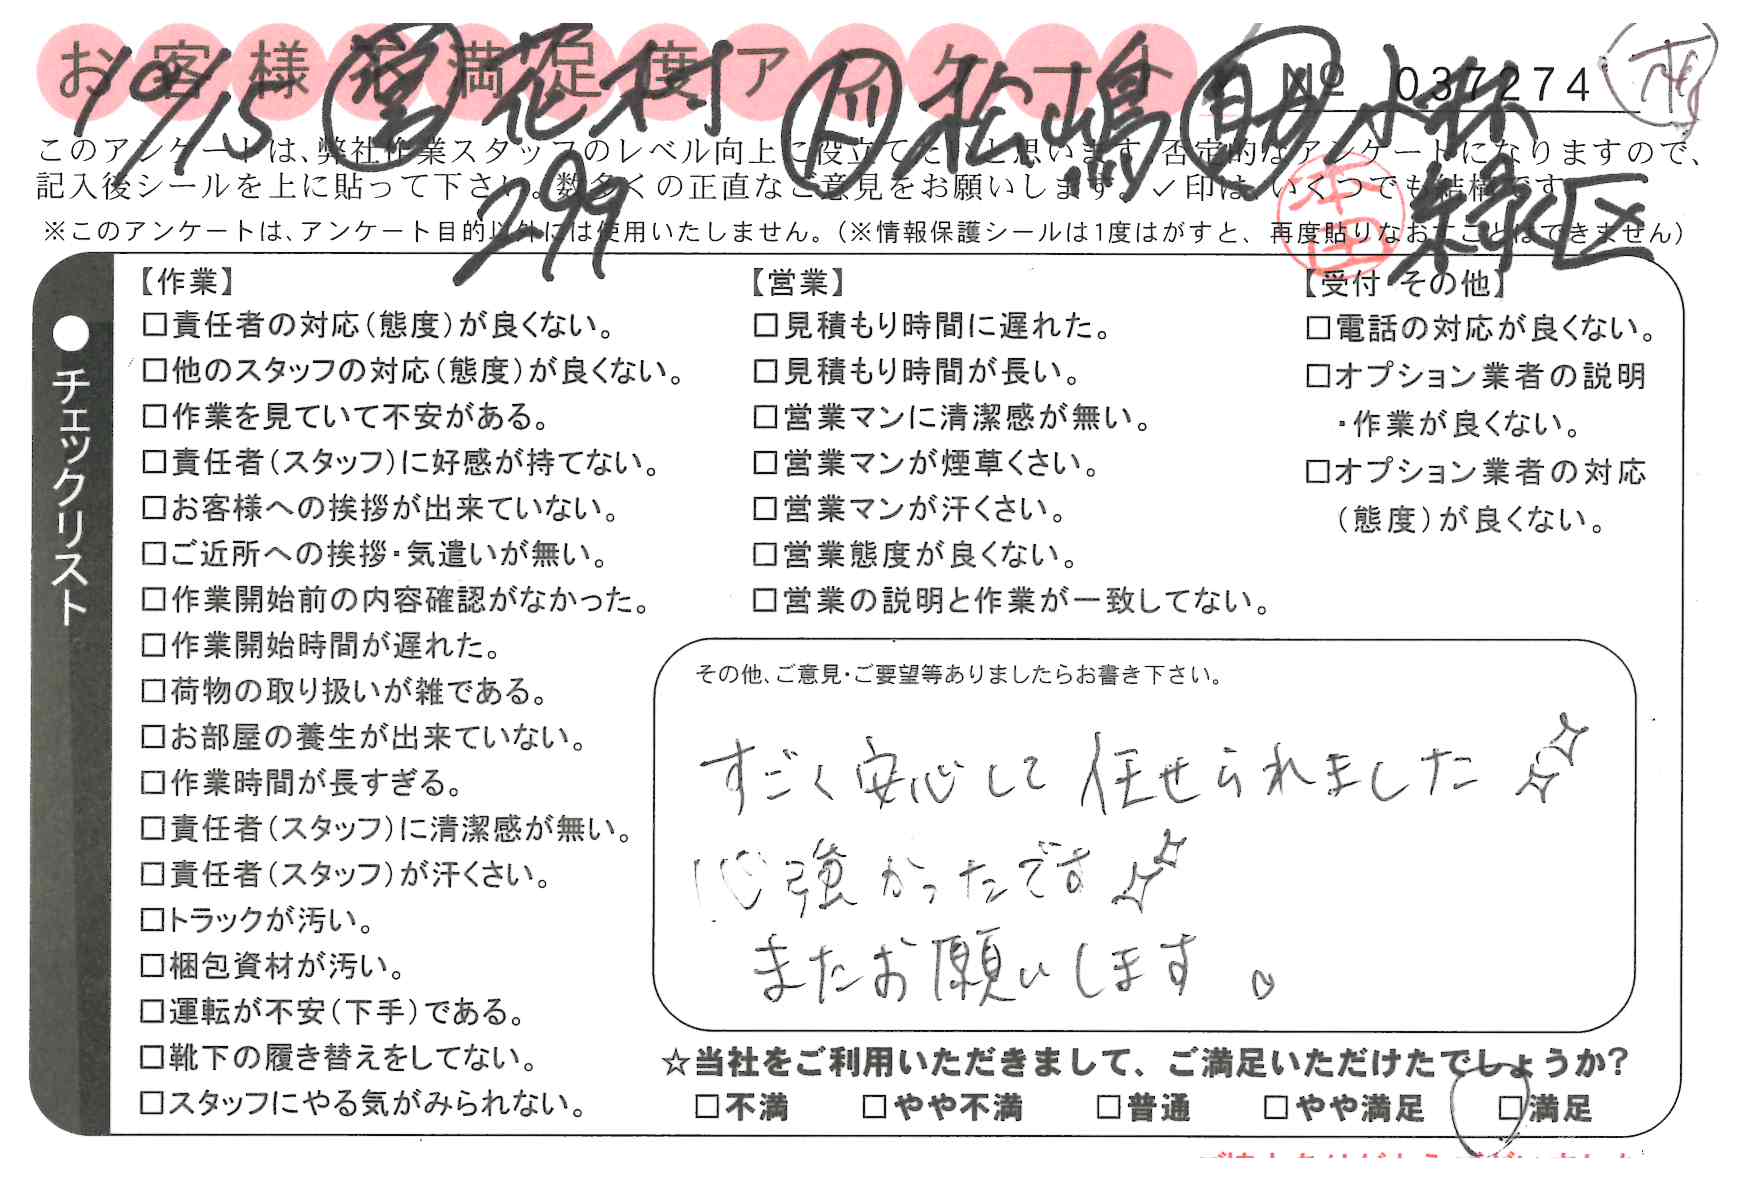 お客様不満足度アンケート
№ 037274
10/15 営 花村 川 松嶋 助 小林
299
緑区
本田
このアンケートは、弊社作業スタッフのレベル向上に役立てたいと思います。否定的なアンケートになりますので、
記入後シールを上に貼って下さい。数多くの正直なご意見をお願いします。✓印は、いくつでも結構です。
※このアンケートは、アンケート目的以外には使用いたしません。(※情報保護シールは1度はがすと、再度貼りなおすことはできません)
●チェックリスト
【作業】
□責任者の対応(態度)が良くない。
□他のスタッフの対応(態度)が良くない。
□作業を見ていて不安がある。
□責任者(スタッフ)に好感が持てない。
□お客様への挨拶が出来ていない。
□ご近所への挨拶・気遣いが無い。
□作業開始前の内容確認がなかった。
□作業開始時間が遅れた。
□荷物の取り扱いが雑である。
□お部屋の養生が出来ていない。
□作業時間が長すぎる。
□責任者(スタッフ)に清潔感が無い。
□責任者(スタッフ)が汗くさい。
□トラックが汚い。
□梱包資材が汚い。
□運転が不安(下手)である。
□靴下の履き替えをしてない。
□スタッフにやる気がみられない。
【営業】
□見積もり時間に遅れた。
□見積もり時間が長い。
□営業マンに清潔感が無い。
□営業マンが煙草くさい。
□営業マンが汗くさい。
□営業態度が良くない。
□営業の説明と作業が一致してない。
【受付・その他】
□電話の対応が良くない。
□オプション業者の説明
・作業が良くない。
□オプション業者の対応
(態度)が良くない。
その他、ご意見・ご要望等ありましたらお書き下さい。
すごく安心して任せられました
心強かったです
またお願いします。
☆当社をご利用いただきまして、ご満足いただけたでしょうか?
□不満 □やや不満 □普通 □やや満足 □満足